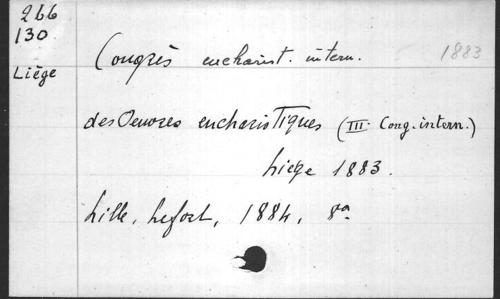 266
130
Liège
Congrès eucharist. intern. 1883
des Oeuvres eucharistiques (III. Cong. intern.)
Liège 1883.
Lille, Lefort, 1884, 8º